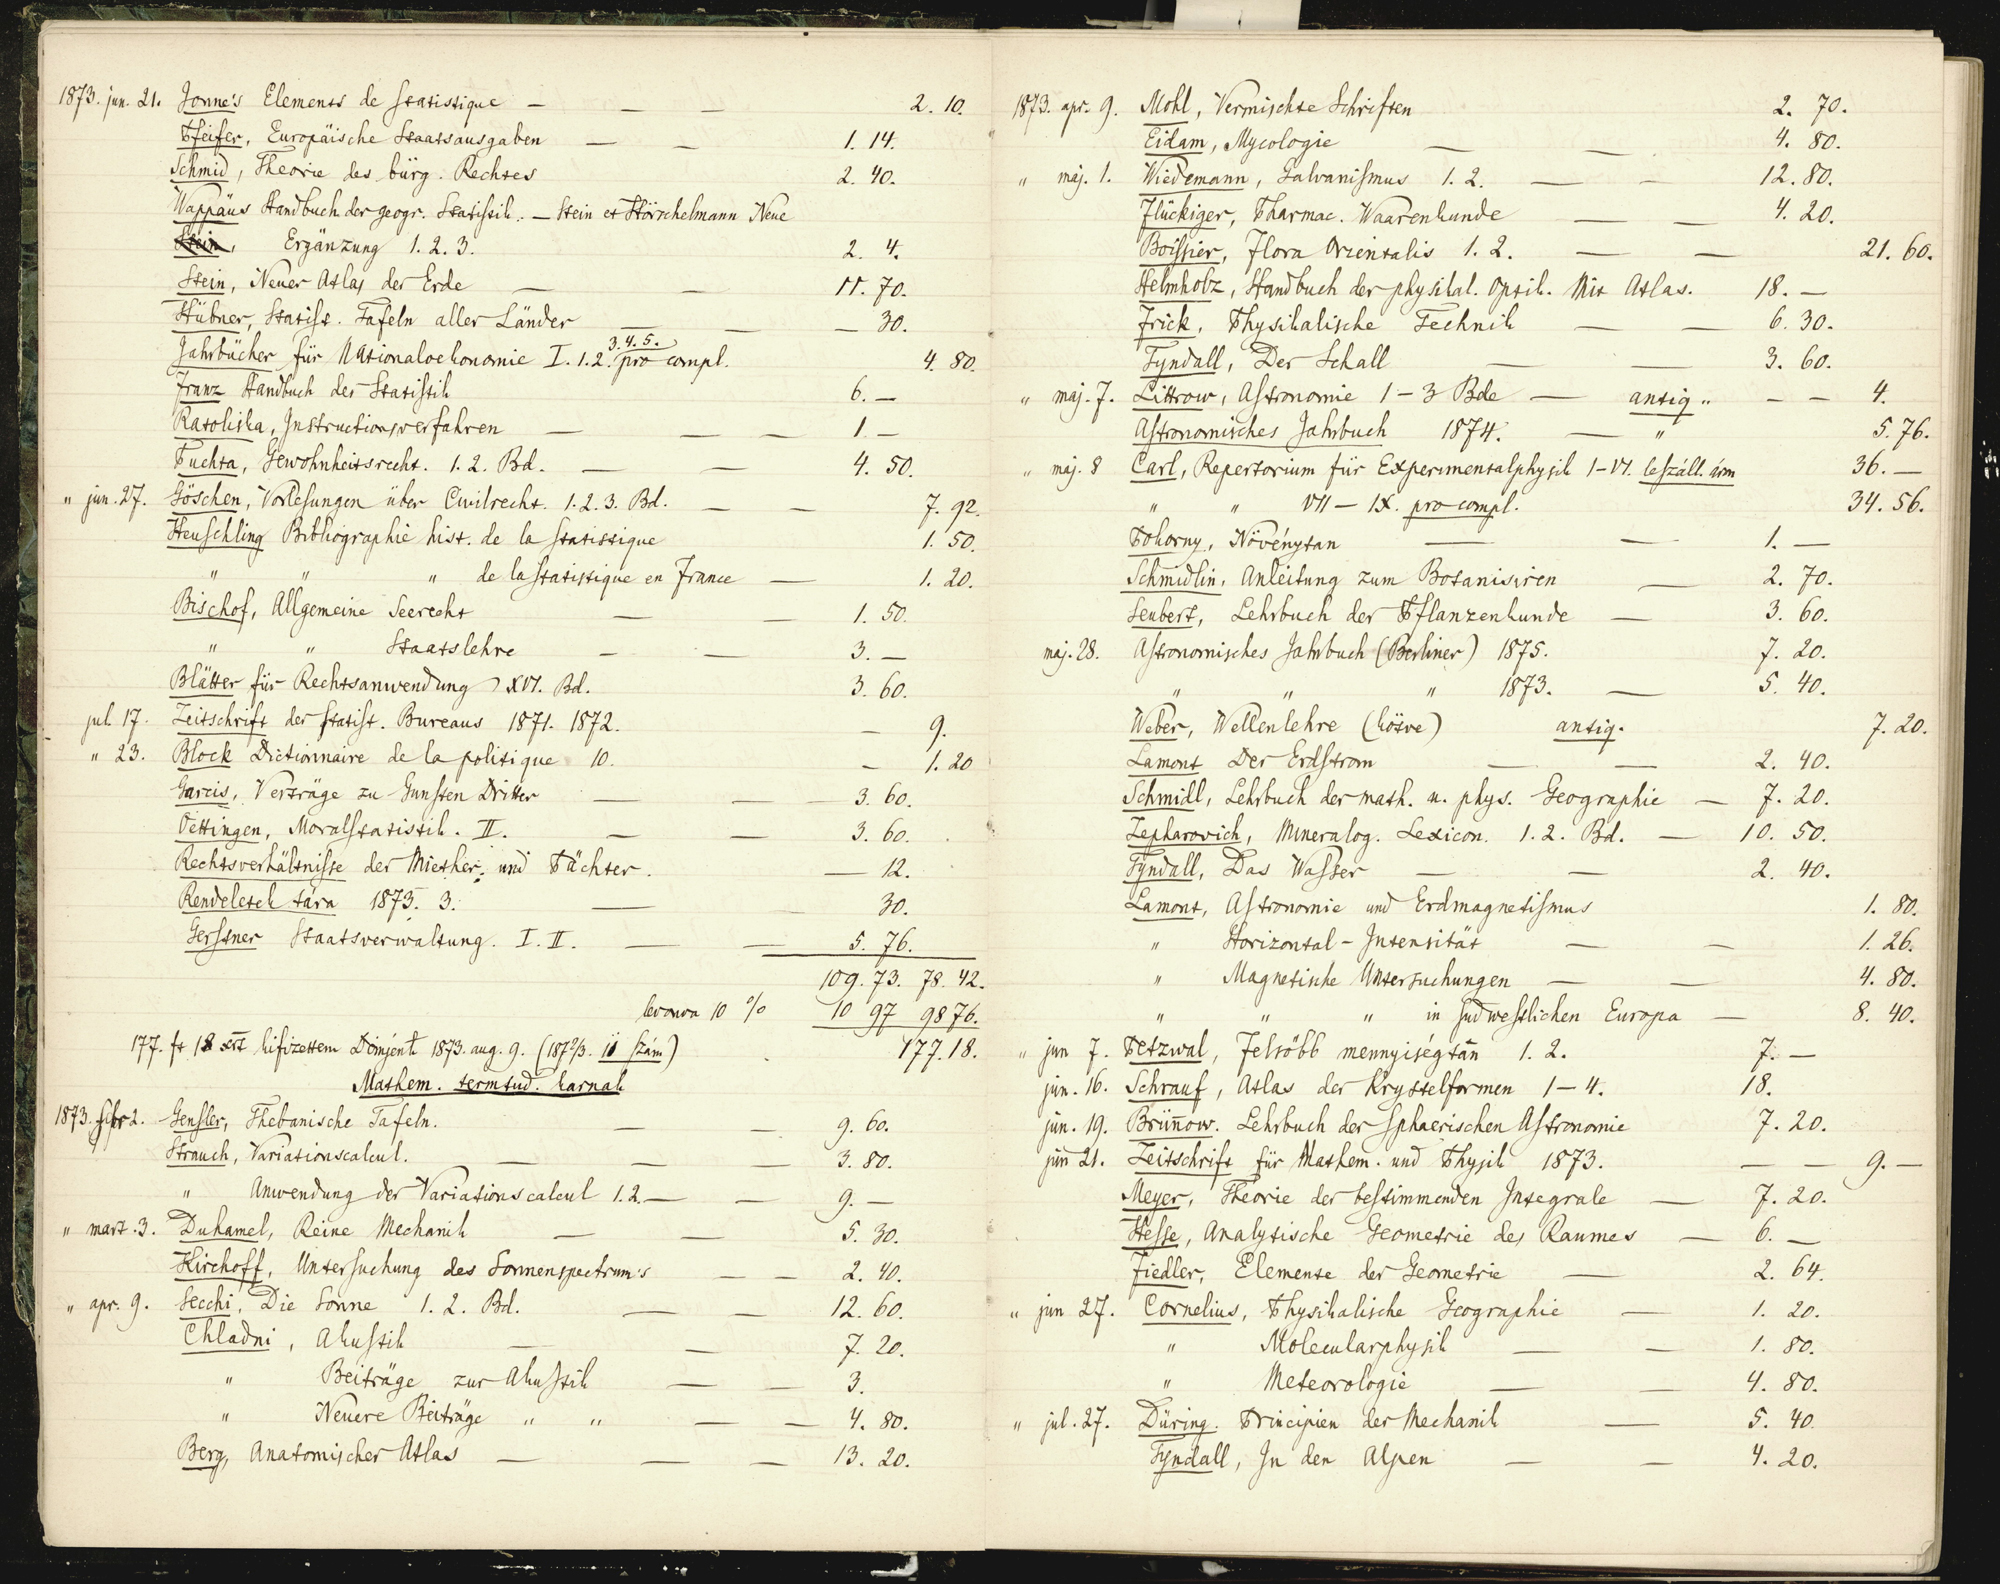 1873. jun. 21. Jonne's Elements de statistique — — — 2. 10.
Pfeifer, Europäische Staatsausgaben — — 1. 14.
Schmid, Theorie des bürg. Rechtes 2. 40.
Wappäus Handbuch der geogr. Statistik. — Stein et Hörschelmann Neue
Stein, Ergänzung 1. 2. 3. 2. 4.
Stein, Neuer Atlas der Erde — — 11. 70.
Hübner, Statist. Tafeln aller Länder — — — 30.
Jahrbücher für Nationaloekonomie I. 1. 2. 3. 4. 5. pro compl. 4. 80.
Franz Handbuch der Statistik 6. —
Ratoliska, Instructionsverfahren — — — 1 —
Puchta, Gewohnheitsrecht. 1. 2. Bd. — — 4. 50.
" jun. 27. Göschen, Vorlesungen über Civilrecht. 1. 2. 3. Bd. — — 7. 92.
Heuschling Bibliographie hist. de la statistique 1. 50.
" " " de la statistique en France — 1. 20.
Bischof, Allgemeine Seerecht — — 1. 50.
" " Staatslehre — — 3. —
Blätter für Rechtsanwendung XVI. Bd. 3. 60.
jul. 17. Zeitschrift der statist. Bureaus 1871. 1872. — 9.
" 23. Block Dictionnaire de la politique 10. — 1. 20
Gareis, Verträge zu Gunsten Dritter — — — 3. 60.
Oettingen, Moralstatistik. II. — — 3. 60.
Rechtsverhältnisse der Miether, und Pächter. — 12.
Rendeletek tára 1873. 3. — 30.
Gerstner Staatsverwaltung. I. II. — — 5. 76.
109. 73. 78. 42.
levonva 10 % 10 97 98 76.
177. ft 18 krt kifizettem Domjent 1873. aug. 9. (1872/3. 11 szám) 177. 18.
Mathem. termtud. karnak
1873. febr 2. Gensler, Thebanische Tafeln. — — 9. 60.
Strauch, Variationscalcul. — — — 3. 80.
" Anwendung der Variationscalcul 1. 2. — — 9. —
" mart. 3. Duhamel, Reine Mechanik — — 5. 30.
Kirchoff, Untersuchung des Sonnenspectrum's — — 2. 40.
" apr. 9. Secchi, Die Sonne 1. 2. Bd. — — 12. 60.
Chladni, Akustik — — 7. 20.
" Beiträge zur Akustik — — 3.
" Neuere Beiträge " " — — 4. 80.
Berg, Anatomischer Atlas — — — 13. 20.
1873. apr. 9. Mohl, Vermischte Schriften 2. 70.
Eidam, Mycologie — — 4. 80.
" máj. 1. Wiedemann, Galvanismus 1. 2. — — 12. 80.
Flückiger, Pharmac. Waarenkunde — — 4. 20.
Boissier, Flora Orientalis 1. 2. — — 21. 60.
Helmholz, Handbuch der physikal. Optik. Mit Atlas. 18. —
Frick, Physikalische Technik — — 6. 30.
Tyndall, Der Schall — — 3. 60.
" máj. 7. Littrow, Astronomie 1 – 3 Bde — antiq " — — 4.
Astronomisches Jahrbuch 1874. — " 5. 76.
" máj. 8 Carl, Repertorium für Experimentalphysik 1–VI. leszáll. árm 36. —
" " VII — IX. pro compl. 34. 56.
Pokorny, Növénytan — — 1. —
Schmidlin, Anleitung zum Botanisiren — 2. 70.
Seubert, Lehrbuch der Pflanzenkunde — 3. 60.
máj. 28. Astronomisches Jahrbuch (Berliner) 1875. 7. 20.
" " " 1873. — 5. 40.
Weber, Wellenlehre (kötve) antiq. 7. 20.
Lamont Der Erdstrom — — 2. 40.
Schmidl, Lehrbuch der math. u. phys. Geographie — 7. 20.
Zepharovich, Mineralog. Lexicon. 1. 2. Bd. — 10. 50.
Tyndall, Das Wasser — — 2. 40.
Lamont, Astronomie und Erdmagnetismus 1. 80.
" Horizontal – Intensität — — 1. 26.
" Magnetische Untersuchungen — — 4. 80.
" " " in südwestlichen Europa — 8. 40.
" jun 7. Petzwal, Felsőbb mennyiségtan 1. 2. 7. —
jun. 16. Schrauf, Atlas der Krystelformen 1 – 4. 18.
jun. 19. Brünnow. Lehrbuch der sphaerischen Astronomie 7. 20.
jun 21. Zeitschrift für Mathem. und Physik 1873. — — 9. —
Meyer, Theorie der bestimmenden Integrale — 7. 20.
Hesse, Analytische Geometrie des Raumes — 6. —
Fiedler, Elemente der Geometrie — 2. 64.
" jun 27. Cornelius, Physikalische Geographie — 1. 20.
" Molecularphysik — — 1. 80.
" Meteorologie — — 4. 80.
" jul. 27. Düring. Principien der Mechanik — 5. 40
Tyndall, In den Alpen — — 4. 20.